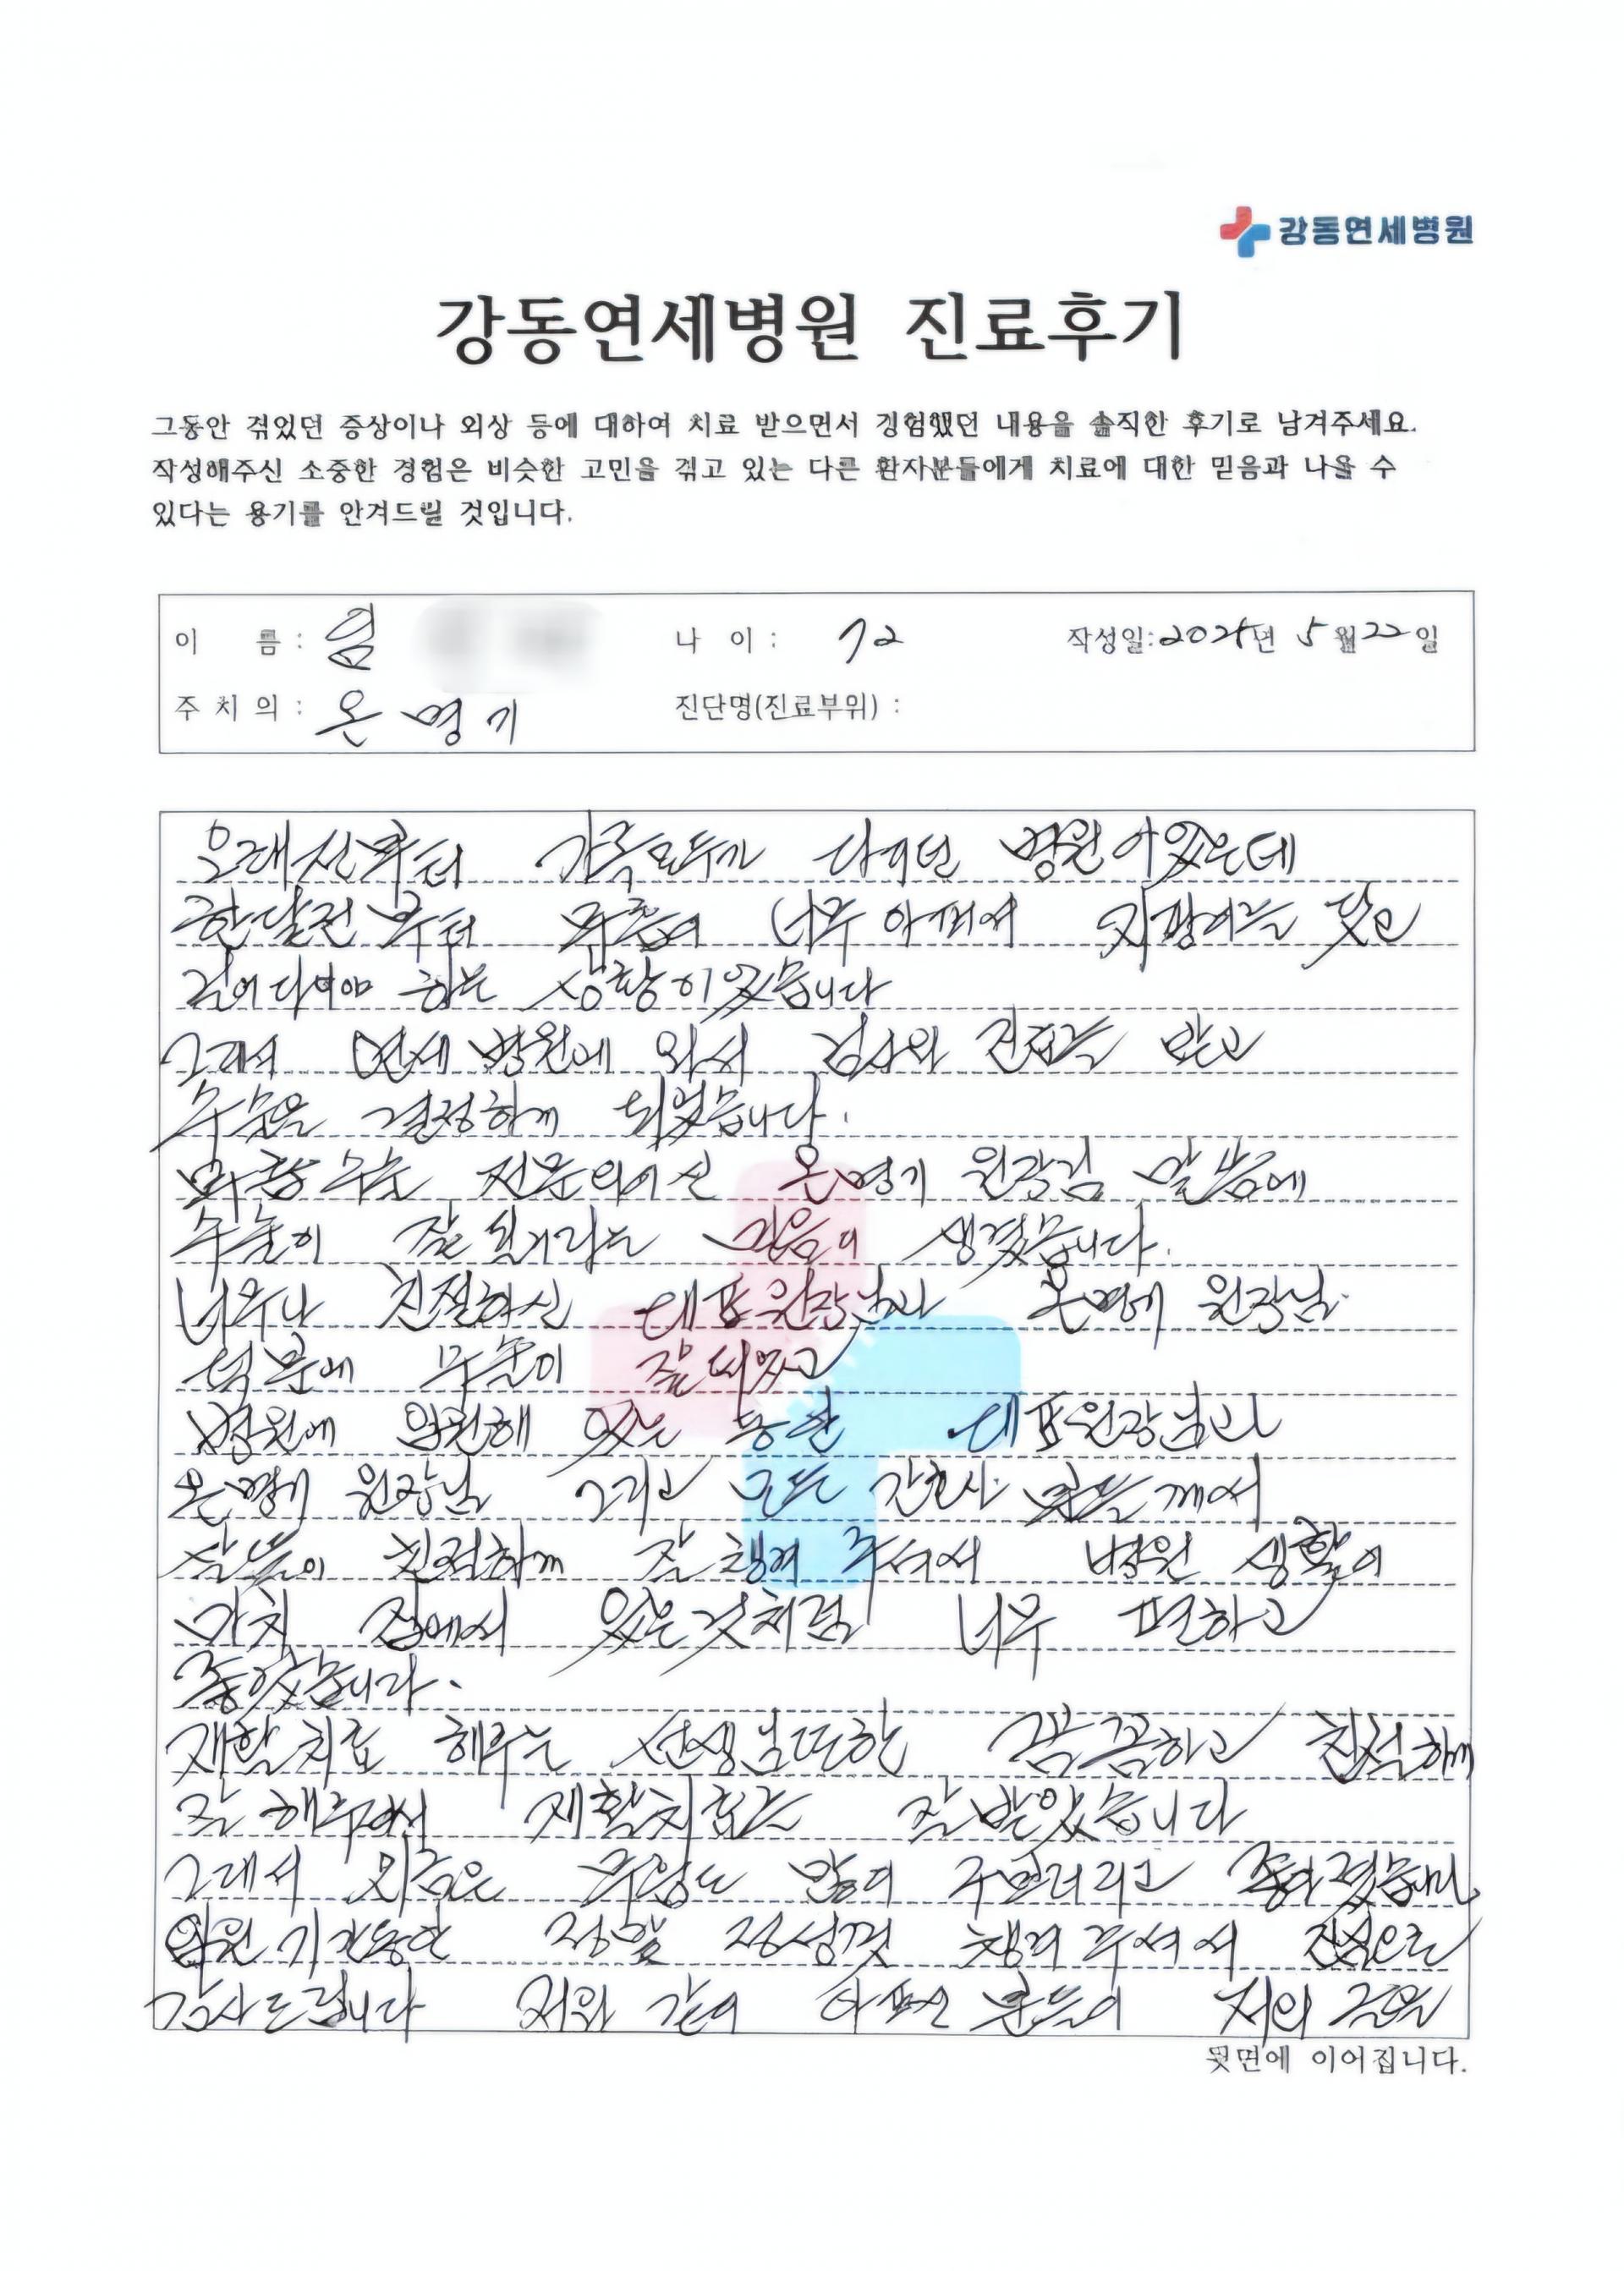 강동연세병원
강동연세병원 진료후기
그동안 겪었던 증상이나 외상 등에 대하여 치료 받으면서 경험했던 내용을 솔직한 후기로 남겨주세요.
작성해주신 소중한 경험은 비슷한 고민을 겪고 있는 다른 환자분들에게 치료에 대한 믿음과 나을 수
있다는 용기를 안겨드릴 것입니다.
이 름 : 염 나 이 : 72 작성일: 년 5월 22일
주 치 의 : 온 명 기 진단명(진료부위) :
오래전부터 가족모두가 다니던 병원이었는데
한달전부터 무릎이 너무 아퍼서 지팡이를 짚고
걸어다녀야 하는 상황이었습니다
그래서 연세병원에 와서 검사와 진료를 받고
수술을 결정하게 되었습니다.
수술 전문의이신 온명기 원장님 말씀에
수술이 잘 될거라는 믿음이 생겼습니다.
너무나 친절하신 대표원장님과 온명기 원장님
덕분에 수술이 잘되었고
병원에 입원해 있는 동안 대표원장님과
온명기 원장님 그리고 모든 간호사 분들께서
친절하게 잘 챙겨 주셔서 병원 생활이
마치 집에서 있은것처럼 너무 편하고
좋았습니다.
재활치료 해주는 선생님또한 꼼꼼하고 친절하게
잘 해주셔서 재활치료는 잘 받았습니다
그래서 지금은 무릎도 많이 좋아졌습니다
입원기간동안 정말 정성껏 챙겨 주셔서 진심으로
감사드립니다 저와 같이 아픈 분들이 저의 글을
뒷면에 이어집니다.